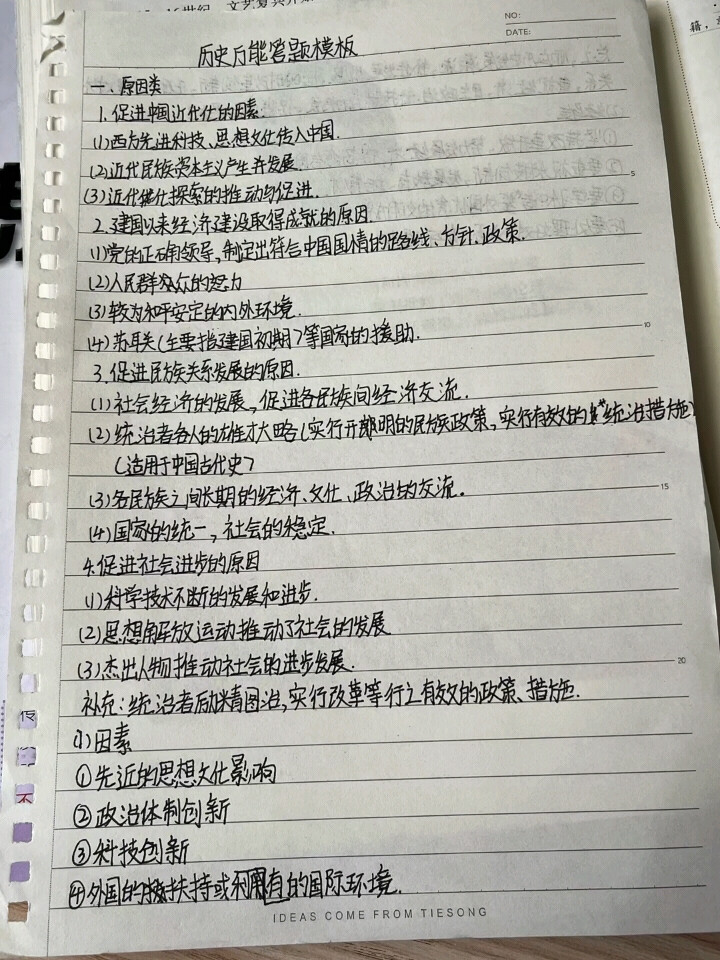 15、16世纪，文艺复兴
NO:
DATE:
历史万能答题模板
一、原因类
1.促进中国近代化的因素.
(1)西方先进科技、思想文化传入中国.
(2)近代民族资本主义产生并发展.
(3)近代化探索的推动与促进.
2.建国以来经济建设取得成就的原因.
(1)党的正确领导,制定出符合中国国情的路线、方针、政策.
(2)人民群众的努力
(3)较为和平安定的内外环境.
(4)苏联(主要指建国初期)等国家的援助.
3.促进民族关系发展的原因.
(1)社会经济的发展,促进各民族间经济交流.
(2)统治者个人的雄才大略(实行开明的民族政策,实行有效的统治措施)
(适用于中国古代史)
(3)各民族之间长期的经济、文化、政治的交流.
(4)国家的统一,社会的稳定.
4.促进社会进步的原因
(1)科学技术不断的发展和进步.
(2)思想解放运动推动了社会的发展
(3)杰出人物推动社会的进步发展.
补充:统治者励精图治,实行改革等行之有效的政策、措施.
(1)因素
①先近的思想文化影响
②政治体制创新
③科技创新
④外国的扶持或利用有的国际环境.
5
10
15
20
IDEAS COME FROM TIESONG
籍,
不